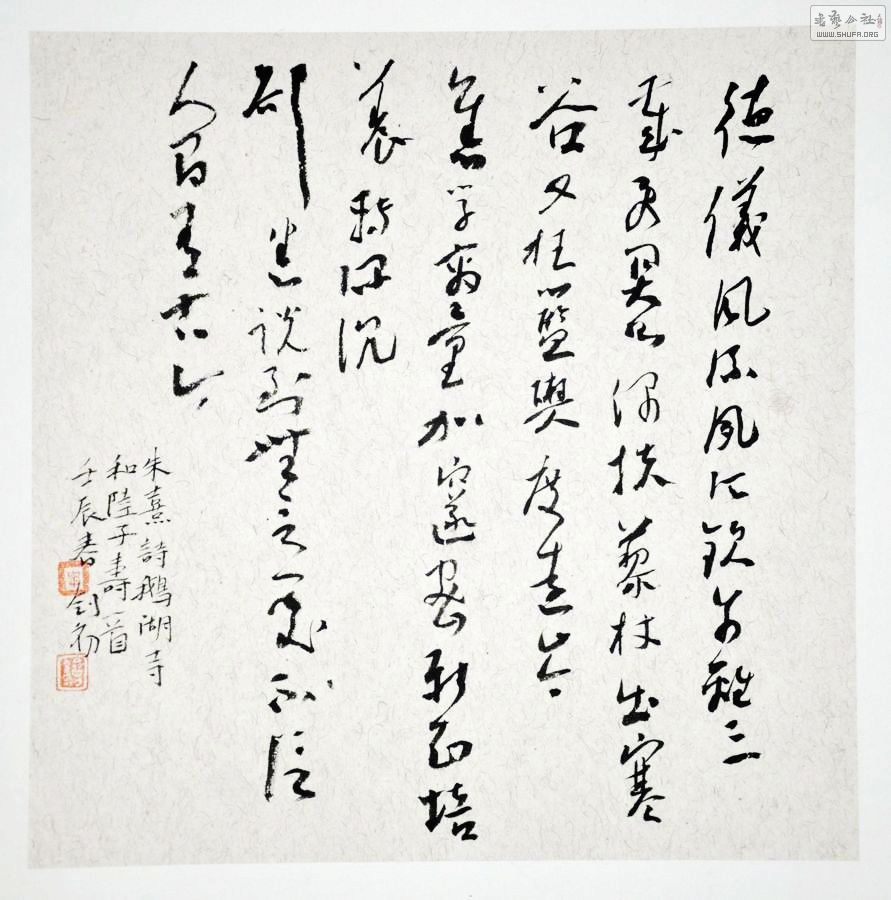 德儀風流夙所欽別離三
載更關心偶扶藜杖出寒
谷又枉籃輿度遠岑
舊學商量加邃密新知培
養轉深沉
卻愁說到無言處不信
人間有古今
朱熹詩鵝湖寺
和陸子壽一首
壬辰春 劍初
書藝公社
WWW.SHUFA.ORG